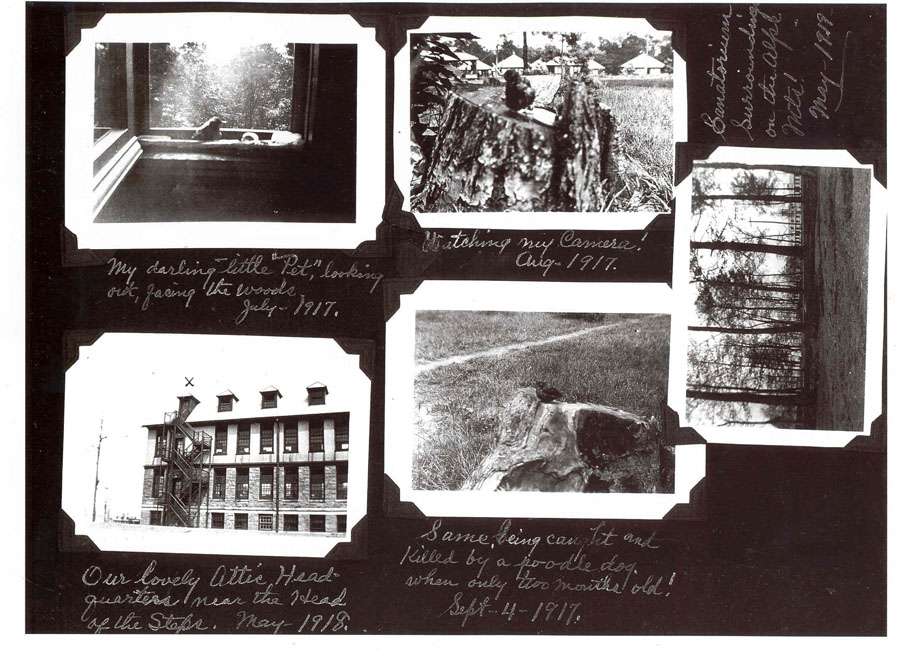 My darling little "Pet", looking
out, facing the woods,
July - 1917.
Watching my Camera!
Aug - 1917.
Sanatorium
Surrounding
on the
Note!
May - 1918
X
Our lovely Attic, Head-
quarters near the Head
of the Steps. May - 1918.
Same, being caught and
Killed by a poodle dog
when only two months old!
Sept - 4 - 1917.